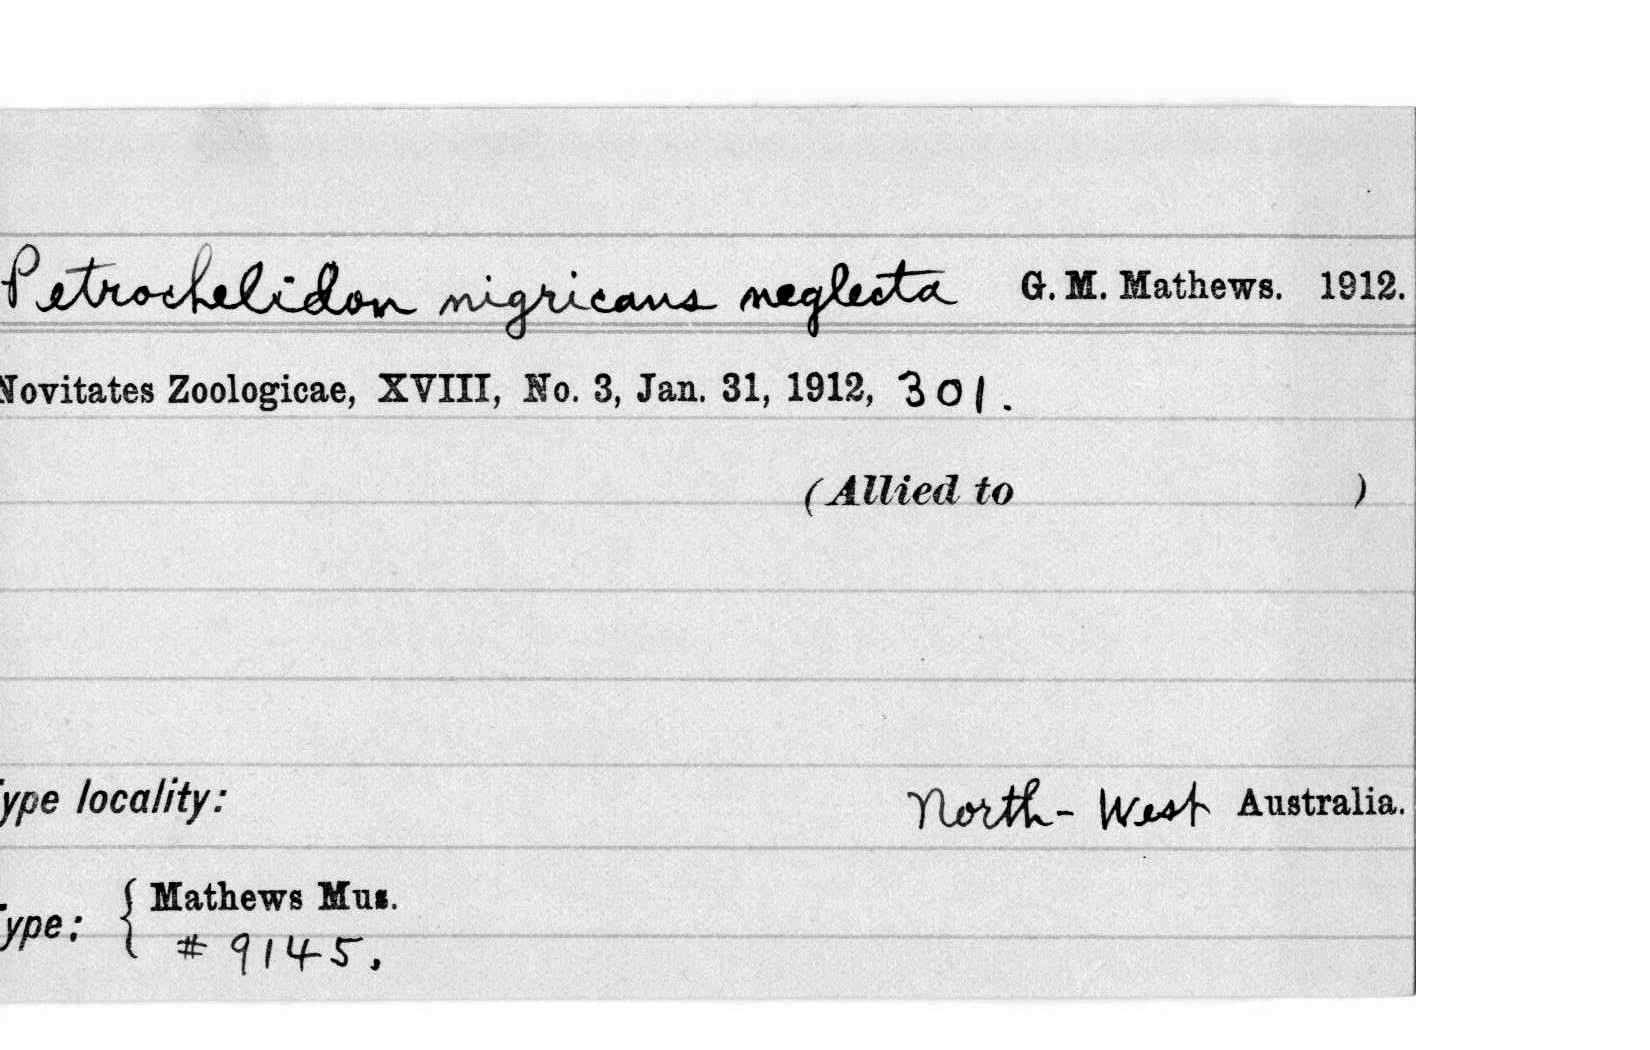 Petrochelidon nigricans neglecta G. M. Mathews. 1912.
Novitates Zoologicae, XVIII, No. 3, Jan. 31, 1912, 301.
(Allied to )
ype locality: North-West Australia.
ype: { Mathews Mus.
# 9145.